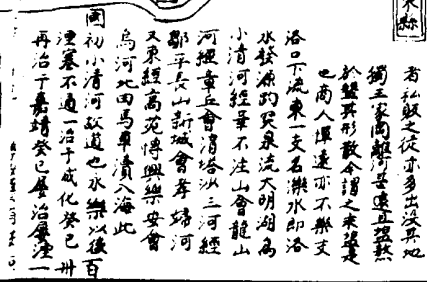 縣
者私販之從亦多出没其地
獨王家岡離河差遠且鹽熬
於鹽其形散今謂之末鹽是
也商人憚遠亦不樂支
洛口下流東一支名濼水即洛
水發源趵突泉流大明湖爲
小清河經華不注山會龍山
河經章丘會消塔沙三河經
鄒平長山新城會孝婦河
又東經高苑博興樂安會
烏河北由馬車瀆入海此
國初小清河故道也永樂以後百
湮塞不通一治于成化癸巳卅
再治于嘉靖癸巳屡治屡湮一